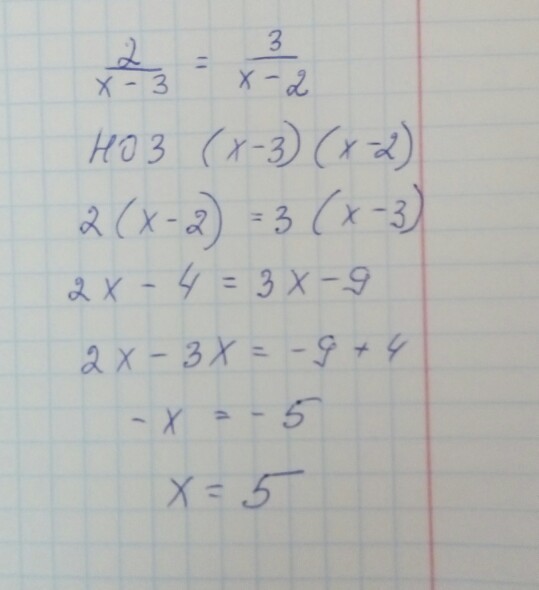 2/(x - 3) = 3/(x - 2)
НОЗ (x-3) (x-2)
2(x-2) = 3(x-3)
2x - 4 = 3x - 9
2x - 3x = -9 + 4
-x = -5
x = 5